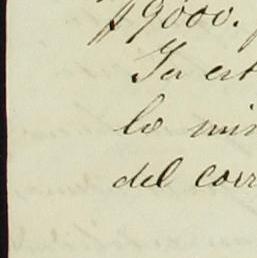 $9000.
Ya est
lo mis
del corr